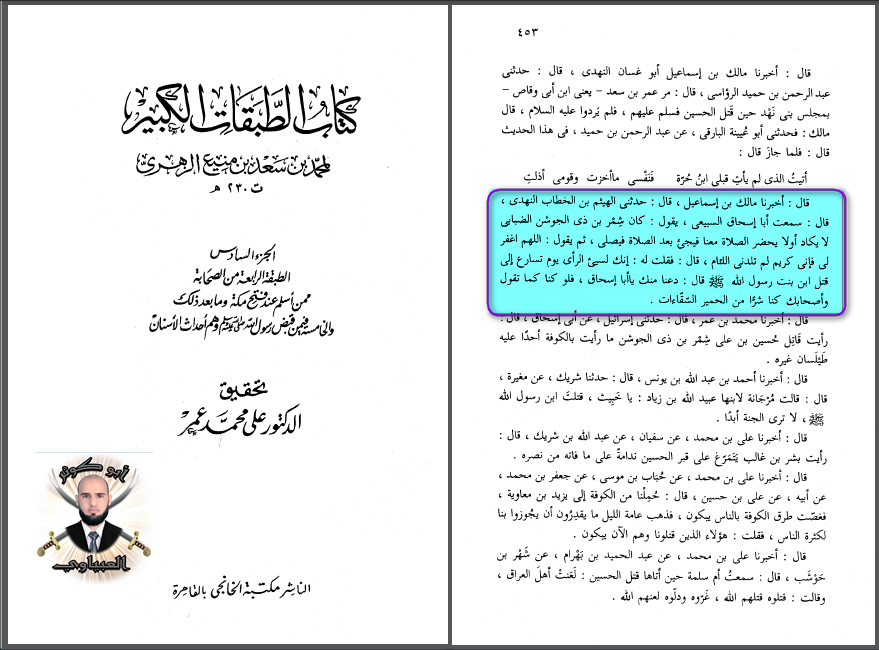 ٤٥٣
قال : أخبرنا مالك بن إسماعيل أبو غسان النهدى ، قال : حدثنى
عبد الرحمن بن حميد الرؤاسى ، قال : مر عمر بن سعد – يعنى ابن أبى وقاص –
بمجلس بنى نَهْد حين قَتل الحسين فسلم عليهم ، فلم يَردوا عليه السلام ، قال
مالك : فحدثنى أبو عُيينة البارقى ، عن عبد الرحمن بن حميد ، فى هذا الحديث
قال : فلما جازَ قال :
أتيتُ الذى لم يأتِ قبلى ابنُ حُرّة فَنَفْسى ماأخزت وقومى أذلتِ
قال : أخبرنا مالك بن إسماعيل ، قال : حدثنى الهيثم بن الخطاب النهدى ،
قال : سمعت أبا إسحاق السبيعى ، يقول : كان شِمْر بن ذى الجوشن الضبابى
لا يكاد أولا يحضر الصلاة معنا فيجئ بعد الصلاة فيصلى ، ثم يقول : اللهم اغفر
لى فإنى كريم لم تلدنى اللئام ، قال : فقلت له : إنك لسيئ الرأى يوم تسارع إلى
قتل ابن بنت رسول الله ﷺ قال : دعنا منك ياأبا إسحاق ، فلو كنا كما تقول
وأصحابك كنا شرًّا من الحمير السّقّاءات .
قال : أخبرنا محمد بن عمر ، قال : حدثنى إسرائيل ، عن أبى إسحاق ، قال :
رأيت قَاتِل حُسين بن على شِمْر بن ذى الجوشن ما رأيت بالكوفة أحدًا عليه
طَيْلَسان غيره .
قال : أخبرنا أحمد بن عبد الله بن يونس ، قال : حدثنا شريك ، عن مغيرة ،
قال : قالت مُرْجَانة لابنها عبيد الله بن زياد : يا خَبِيث ، قتلتَ ابن رسول الله
ﷺ ، لا ترى الجنة أبدًا .
قال : أخبرنا على بن محمد ، عن سفيان ، عن عبد الله بن شريك ، قال :
رأيت بشر بن غالب يَتَمَرّغ على قبر الحسين ندامةً على ما فاته من نصره .
قال : أخبرنا على بن محمد ، عن حُبَاب بن موسى ، عن جعفر بن محمد ،
عن أبيه ، عن على بن حسين ، قال : حُمِلْنا من الكوفة إلى يزيد بن معاوية ،
فغصّت طرق الكوفة بالناس يبكون ، فذهب عامة الليل ما يقدِرُون أن يجُوزوا بنا
لكثرة الناس ، فقلت : هؤلاء الذين قتلونا وهم الآن يبكون .
قال : أخبرنا على بن محمد ، عن عبد الحميد بن بَهْرام ، عن شَهْر بن
حَوْشَب ، قال : سمعتُ أم سلمة حين أتاها قتل الحسين : لَعَنتْ أهلَ العراق ،
وقالت : قتلوه قتلهم الله ، غَرّوه ودلّوه لعنهم الله .
كتاب الطبقات الكبير
لمحمد بن سعد بن منيع الزهرى
ت ٢٣٠ هـ
الجزء السادس
الطبقة الرابعة من الصحابة
ممن أسلم عند فتح مكة وما بعد ذلك
والخامسة فيمن قبض رسول الله ﷺ وهم أحداث الأسنان
تحقيق
الدكتور على محمد عمر
أبو كوثر
العبياوي
الناشر مكتبة الخانجى بالقاهرة